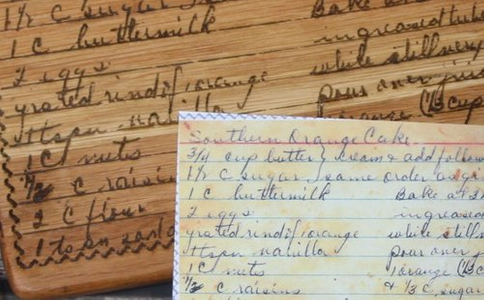 1½ C sugar, sa
1 C buttermilk
2 eggs
grated rind of orange
1 tspn vanilla
1 C nuts
½ C raisins
2 C flour
1 tspn soda
Bake
in greased tube
while still very
pour over jui
orange (⅓ cup
Southern Orange Cake
¾ cup butter } cream & add follow
1½ C sugar, same order as gi
1 C buttermilk
2 eggs
grated rind of orange
1 tspn vanilla
1 C nuts
½ C raisins
Bake at 3
in greased
while still
pour over
1 orange (⅓ C
& ⅓ C. sugar